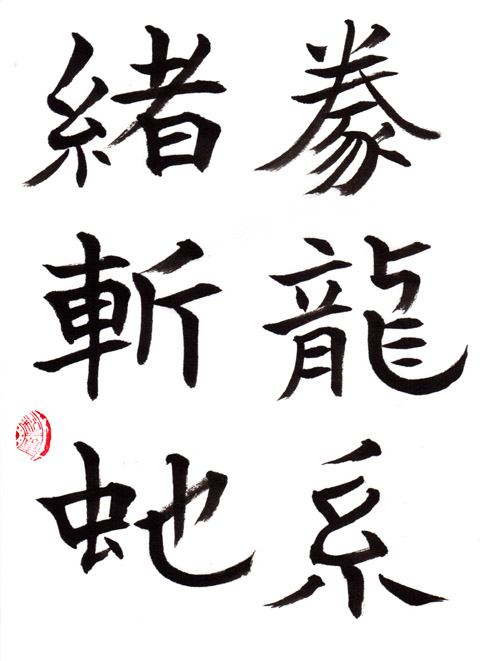 豢龍系
緒斬虵